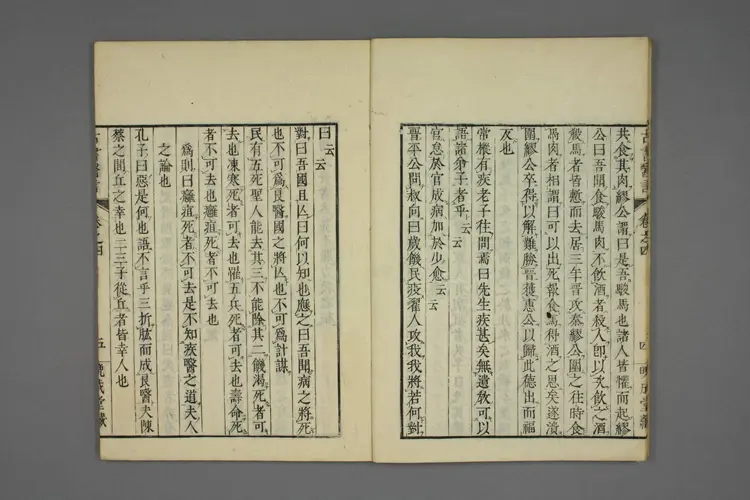 共食其肉繆公謂曰是吾駿馬也諸人皆懼而起繆
公曰吾聞食駿馬肉不飲酒者殺人卽以次飮之酒
殺馬者皆慙而去居三年晉攻秦繆公圍之往時食
馬肉者相謂曰可以出死報食馬得酒之恩矣遂潰
圍繆公卒得以解難勝晉獲惠公以歸此德出而福
反也
常樅有疾老子往問焉曰先生疾甚矣無遺敎可以
語諸弟子者乎云云
官怠於宦成病加於少愈云云
晉平公問叔向曰歲饑民疫翟人攻我我將若何對
四
曰云云
對曰吾國且亾曰何以知也應之曰吾聞病之將死
也不可爲良醫國之將亾也不可爲計謀
民有五死聖人能去其三不能除其二饑渴死者可
去也凍寒死者可去也罹五兵死者可去也壽命死
者不可去也癰疽死者不可去也
爲則曰癰疽死者不可去是不知疾醫之道夫人
之論也
孔子曰惡是何也語不言乎三折肱而成良醫夫陳
蔡之間丘之幸也二三子從丘者皆幸人也
卷之四
五